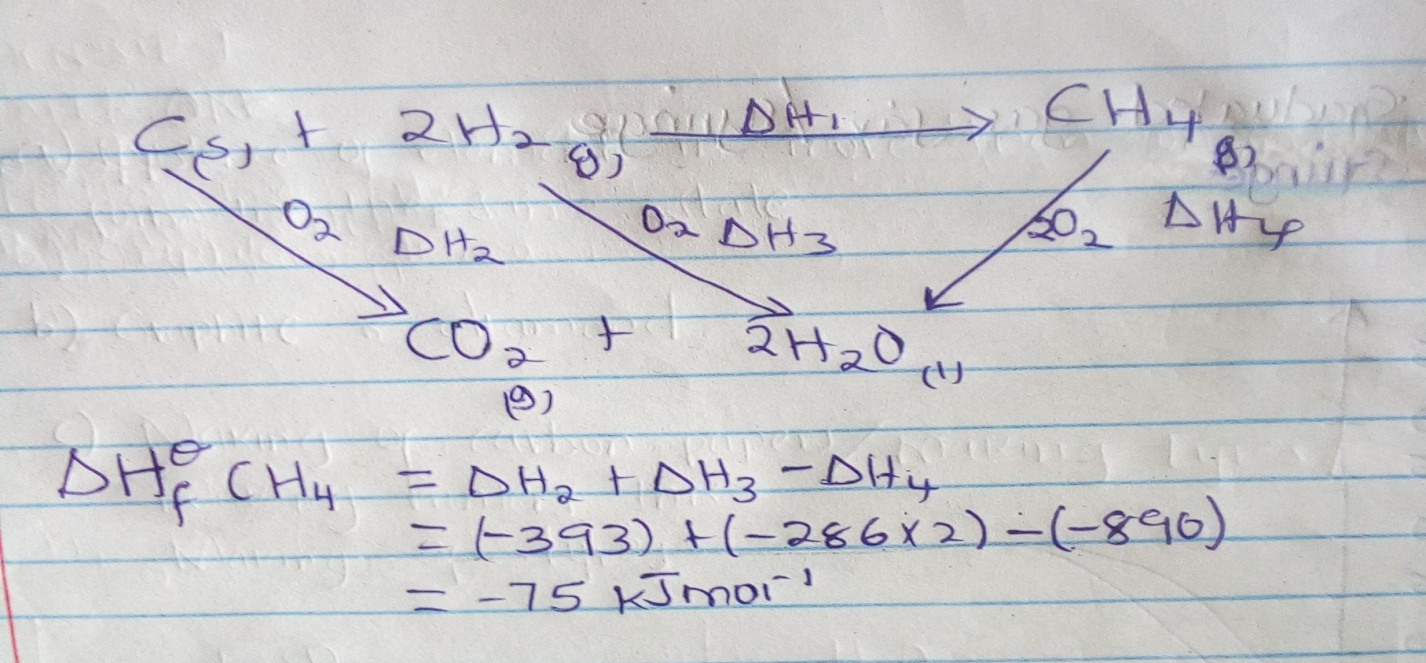 C(s) + 2H₂(g) ΔH₁ → CH₄(g)
O₂ ΔH₂ O₂ ΔH₃ 2O₂ ΔH₄
CO₂(g) + 2H₂O(l)
ΔHf⊖ CH₄ = ΔH₂ + ΔH₃ - ΔH₄
= (-393) + (-286×2) - (-890)
= -75 kJmol⁻¹